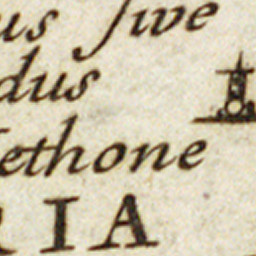 us sive
dus
ethone
RIA